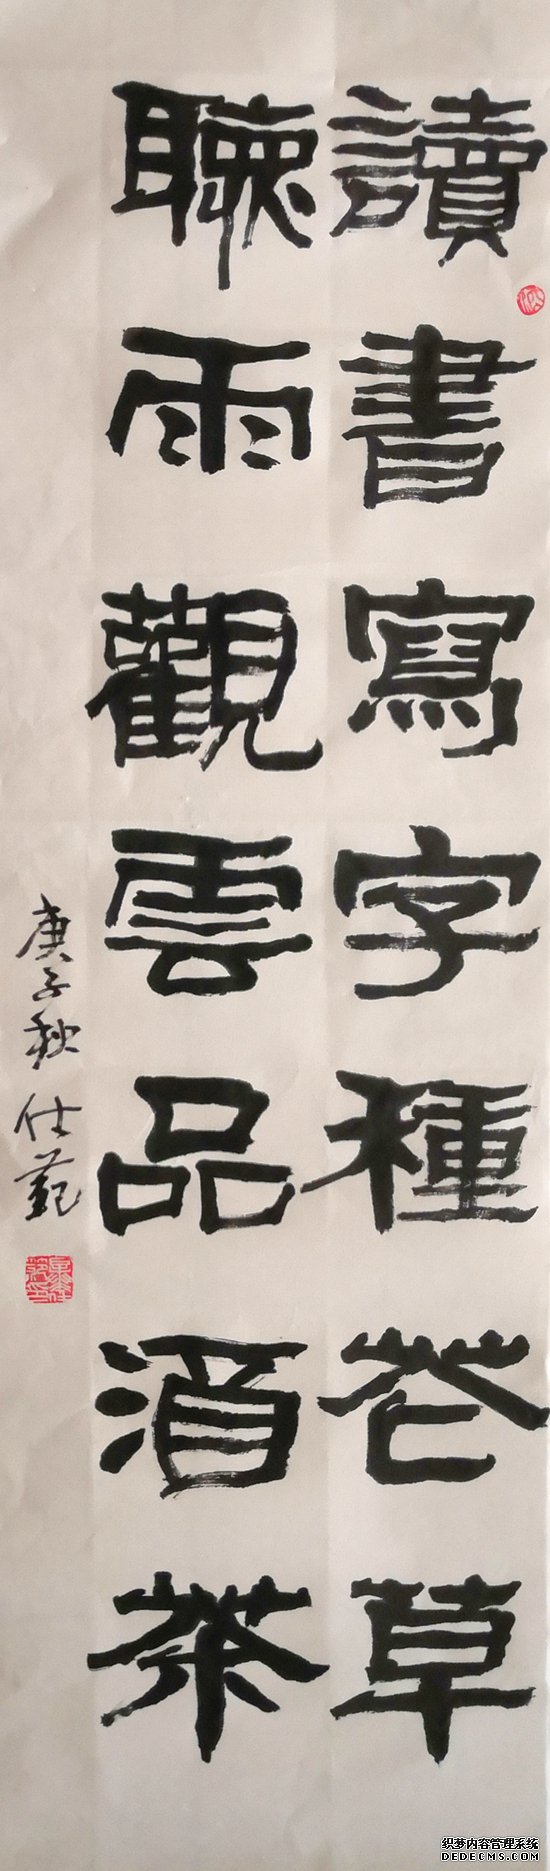 讀書寫字種花草
聽雨觀雲品酒茶
庚子秋 仕範
织梦内容管理系统
DEDECMS.COM